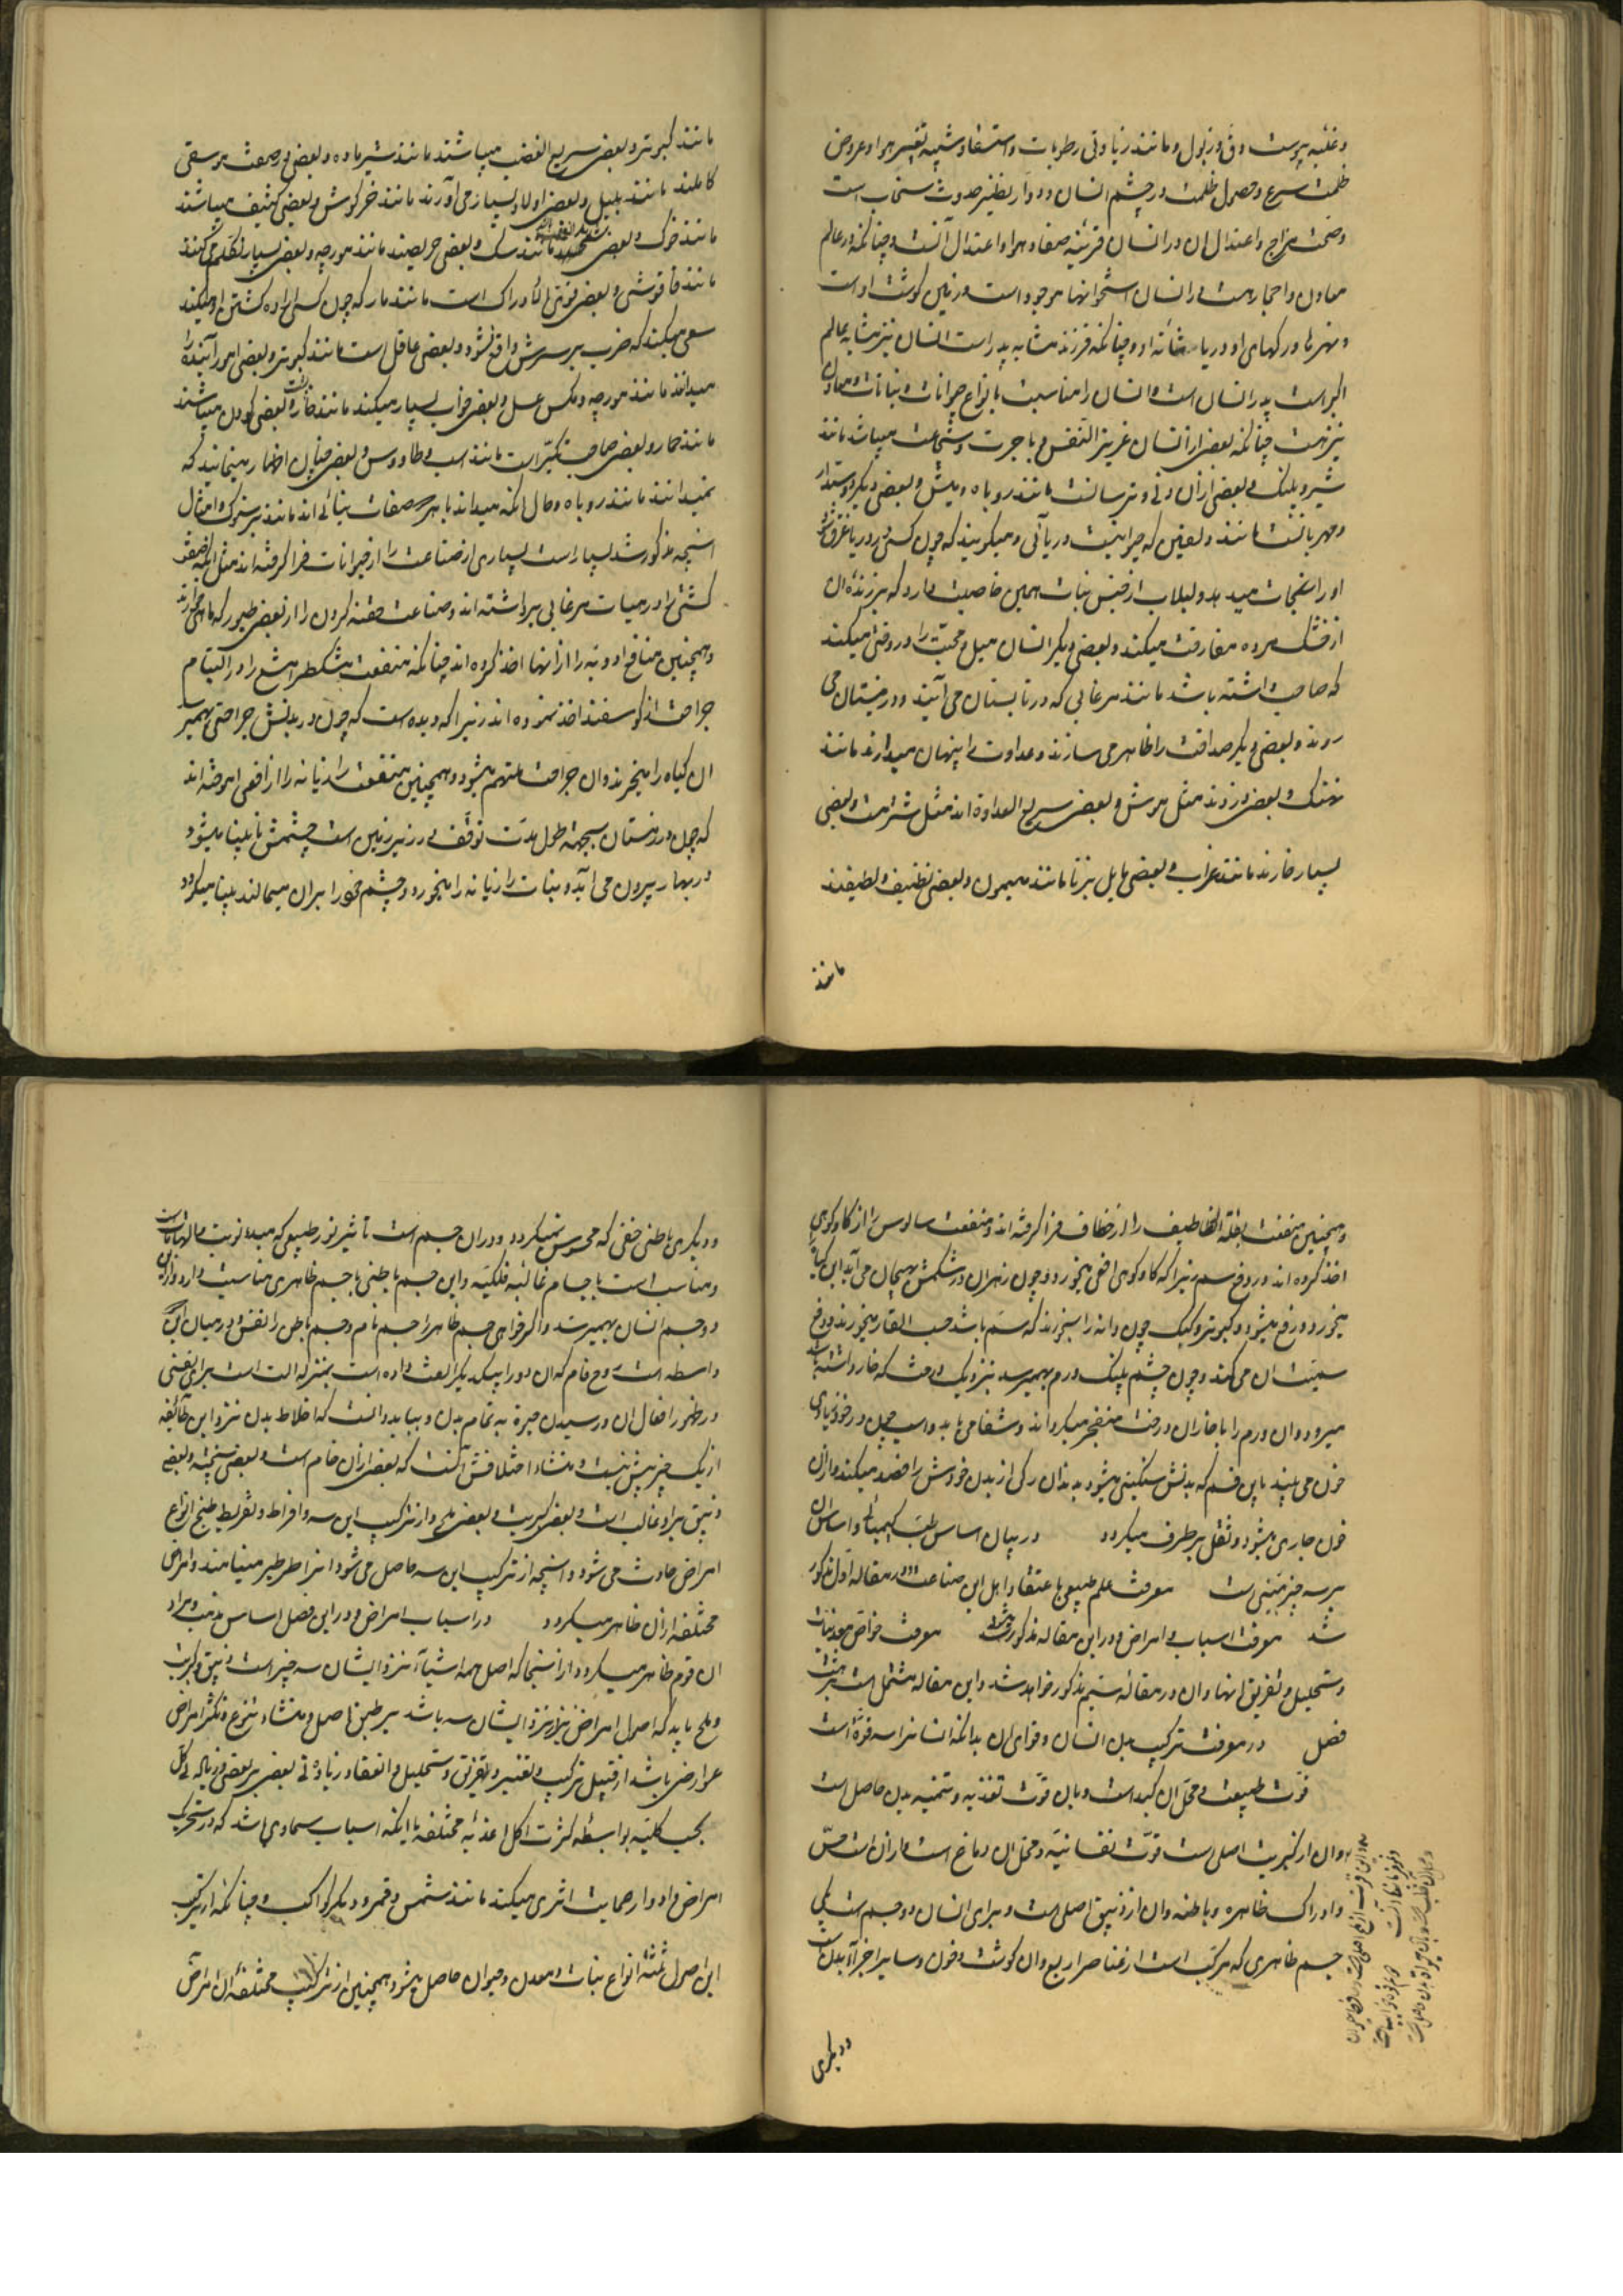 و غلبه یبوست و دق و ذبول و مانند زیادتی رطوبات و استسقا و شبیه تغییر هوا و عروض
ظلمت سریع و حصول ظلمت در چشم انسان و دوار نظیر حدوث سحاب است
و صحت مزاج و اعتدال ان در انسان قرینه صفاء هوا و اعتدال آنست و چنانکه در عالم
معادن و احجار هست در انسان استخوانها موجود است و زمین کوشت او است
و نهرها رکهای او و دریا مثانه او و چنانکه فرزند مشابه پدر است انسان نیز مشابه عالم
اکبر است پدر انسان است و انسان را مناسبت بانواع حیوانات و نباتات و معادن
نیز هست چنانکه بعضی از انسان عزیز النفس و با جرئت و شجاعت میباشد مانند
شیر و پلنک و بعضی از ان دنی و ترسانست مانند روباه و میش و بعضی دیکر دوستدار
و مهربانست مانند دلفین که حیوانیست دریائی و میکویند که چون کسی در دریا غرق شود
او را نجات میدهد و لبلاب از جنس نبات همین خاصیت دارد که نیز زنده ان
از خشک مرده مفارقت میکند و بعضی دیکر انسان میل و محبت را در وقتی میکند
که حاجت داشته باشد مانند مرغابی که در تابستان می آیند و در زمستان می
روند و بعضی دیکر صداقت را ظاهر می سازند و عداوت را پنهان میدارند مانند
نهنک و بعضی دزدند مثل موش و بعضی سریع العداوة اند مثل شتر مست و بعضی
بسیار خوارند مانند غراب و بعضی مایل بزنا مانند میمون و بعضی نظیف و لطیفند
مانند
مانند کبوتر و بعضی سریع الغضب میباشند مانند شیر ماده و بعضی در صنعت موسیقی
کاملند مانند بلبل و بعضی اولاد بسیار می آورند مانند خرکوش و بعضی کثیف میباشند
مانند خوک و بعضی مانند سک و بعضی حریصند مانند مورچه و بعضی بسیار تکلم میکنند
مانند و بعضی قوتی ادراک است مانند مار که چون کسی اراده کشتن او میکند
سعی میکند که ضرب بر سرش واقع نشود و بعضی عاقل است مانند کبوتر و بعضی امور آینده را
میدانند مانند مورچه و مکس عسل و بعضی خواب بسیار میکنند مانند و بعضی کودن میباشند
مانند حمار و بعضی صاحب تکبر است مانند اسب و طاووس و بعضی چنان اظهار مینمایند که
نمیدانند مانند روباه و حال انکه میداند با هر صفات بینائی اند مانند و امثال
انچه مذکور شد بسیار است بسیاری از صناعت را از حیوانات فرا کرفته اند مثل انکه صنعت
کشتی را در هیات مرغابی برداشته اند و صناعت حقنه کردن را از بعضی طیور که ماهی خوارند
و همچنین منافع ادویه را از انها اخذ کرده اند چنانکه منفعت مشکطرامشیع را در التیام
جراحت از کوسفند اخذ نموده اند زیرا که دیده است که چون در بدنش جراحتی بهم رسد
ان کیاه را میخورند و ان جراحت ملتهم میشود و همچنین منفعت رازیانه را از افعی اموخته اند
که چون در زمستان بجهة طول مدت توقف در زیر زمین است چشمش نابینا میشود
در بهار بیرون می آید و نبات رازیانه را میخورد و چشم خود را بران میمالند بینا میکردد
و همچنین منفعت بقلة الخطاطیف را از خطاف فرا کرفته اند و منفعت سالوس را از کاو کوهی
اخذ کرده اند در دفع سم زیرا که کاو کوهی افعی میخورد و چون زهر ان در شکمش بهیجان می آید این کیاه
میخورد و رفع میشود و کبوتر و کبک چون دانه را بخورند که سم باشد حب الغار میخورند و دفع
سمیت ان می کنند و چون چشم پلنک ورم بهم رسد نزدیک درخت که خار داشته باشد
میرود و ان ورم را با خار ان درخت منفجر میکرداند و شفا می یابد و اسب چون در خود زیادتی
خون می بیند باین قسم که بدنش سنکینی میشود بدندان رکی از بدن خودش را فصد میکند و از ان
خون جاری میشود و ثقل بر طرف میکردد در بیان اساس طب کیمیائی و اساس ان
بر سه چیز مبتنی است معرفت علم طبیعی باعتقاد اهل این صناعت و در مقاله اول مذکور
شد معرفت اسباب و امراض و در این مقاله مذکور میشود معرفت خواص معدنیات
و تحلیل و تفریق انها و ان در مقاله سیم مذکور خواهد شد و این مقاله مشتمل است بر هشت
فصل در معرفت ترکیب بدن انسان و قوای ان بدانکه انسانرا سه قوة است
قوت طبیعت و محل ان کبد است و بان قوت تغذیه و تنمیه بدن حاصل است
و ان از کبریت اصلی است قوت نفسانیه و محل ان دماغ است و از ان است حس
و ادراک ظاهره و باطنه و ان از زیبق اصلی است و برای انسان دو جسم است یکی
جسم ظاهری که مرکب است از عناصر اربع و ان کوشت و خون و سایر اجزاء بدن است
و دیکری
و دیکری باطنی خفی که محسوس نمیکردد و در ان جسم است تأثیر نور طبیعی که مبداء نوبت و التهابات است
و مناسب است باجسام غائبه فلکیه و این جسم باطنی با جسم ظاهری مناسبت دارد و از این
دو جسم انسان بهم میرسد و اکر خواهی جسم ظاهر را جسم نام و جسم باطن را نفس و در میان این
واسطه است روح نام که ان دو را بیکدیکر الفت داده است بمنزله الت است برای نفس
در ظهور افعال ان و رسیدن حیوة به تمام بدن و بباید دانست که اخلاط بدن نزد این طائفه
از یک چیز بیش نیست و منشاء اختلافش آنست که بعضی از ان خام است و بعضی پخته و بعضی
زیبق براو غالب است و بعضی کبریت و بعضی ملح و از ترکیب این سه و افراط و تفریط طبخ انواع
امراض حادث می شود و انچه از ترکیب این سه حاصل می شود انرا طرطیر مینامند و امراض
مختلفه از ان ظاهر میکردد در اسباب امراض و در این فصل اساس مذهب و مراد
ان قوم ظاهر میکردد از اینجا که اصل همه اشیاء نزد ایشان سه چیز است زیبق و کبریت
و ملح باید که اصول امراض نیز نزد ایشان سه باشد بر طبق اصل و منشاء تنوع و تکثر امراض
عوارض باشد از قبیل ترکیب و تغییر و تفریق و تحلیل و انعقاد و زیادتی بعضی بر بعضی
بحسب کلیته بواسطه کثرت اکل اغذیه مختلفه یا اینکه اسباب سماوی باشد که در تحریک
امراض و ادوار حمایت اثری میکند مانند شمس و قمر و دیکر کواکب و چنانکه از ترکیب
این اصول ثلثه انواع نبات و معدن و حیوان حاصل میشود همچنین از ترکیب مختلفه ان امراض